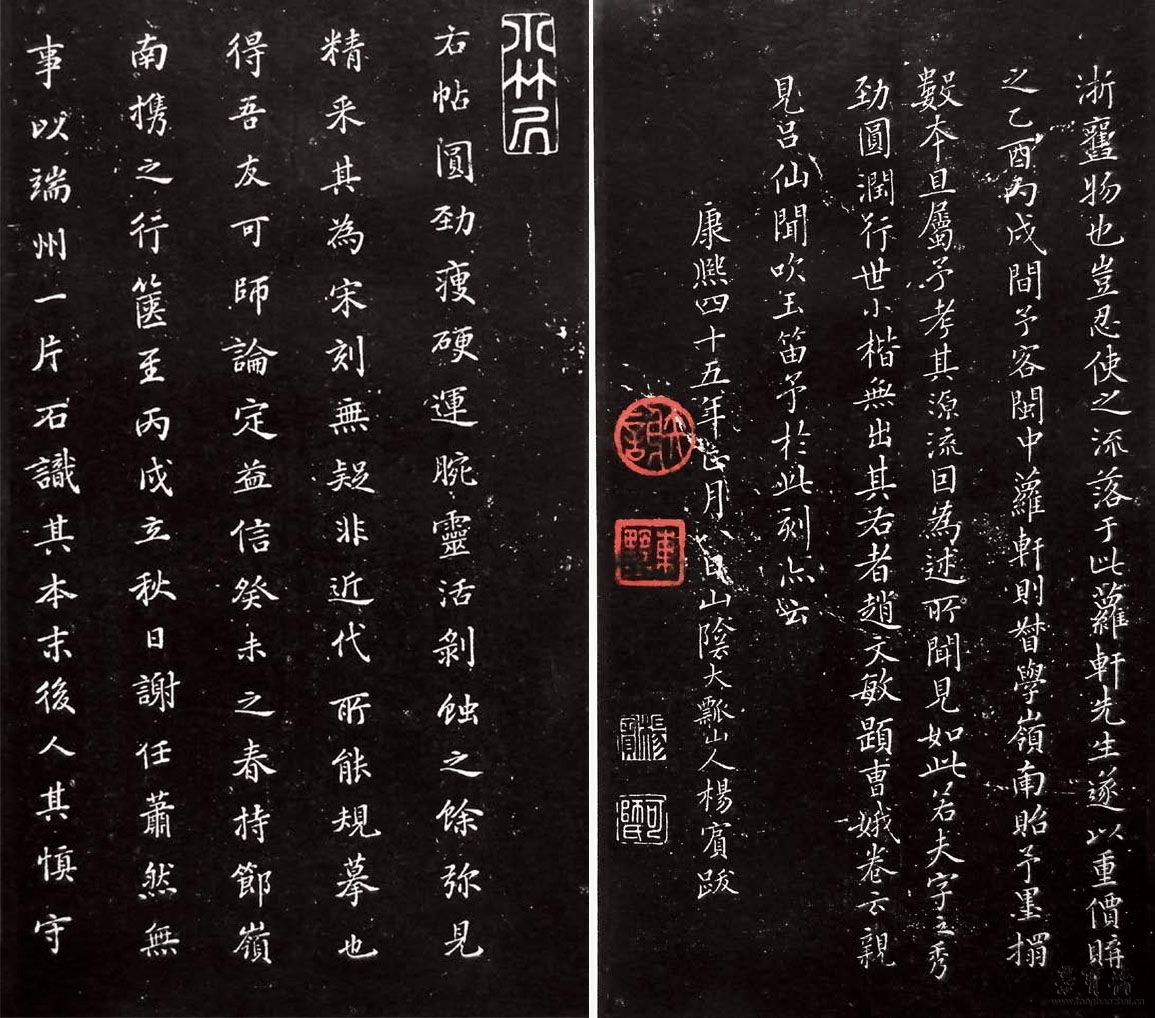 浙舊物也豈忍使之流落于此蘿軒先生遂以重價購
之乙酉丙戌間予客閩中蘿軒則督學嶺南貽予墨搨
數本且屬予考其源流因為述所聞見如此若夫字之秀
勁圓潤行世小楷無出其右者趙文敏題曹娥卷云親
見呂仙聞吹玉笛予於此刻亦云
康熙四十五年正月八日山陰大瓢山人楊賓跋
楊賓
可師
右帖圓勁瘦硬運腕靈活剝蝕之餘弥見
精采其為宋刻無疑非近代所能規摹也
得吾友可師論定益信癸未之春持節嶺
南携之行篋至丙戌立秋日謝任蕭然無
事以端州一片石識其本末後人其慎守